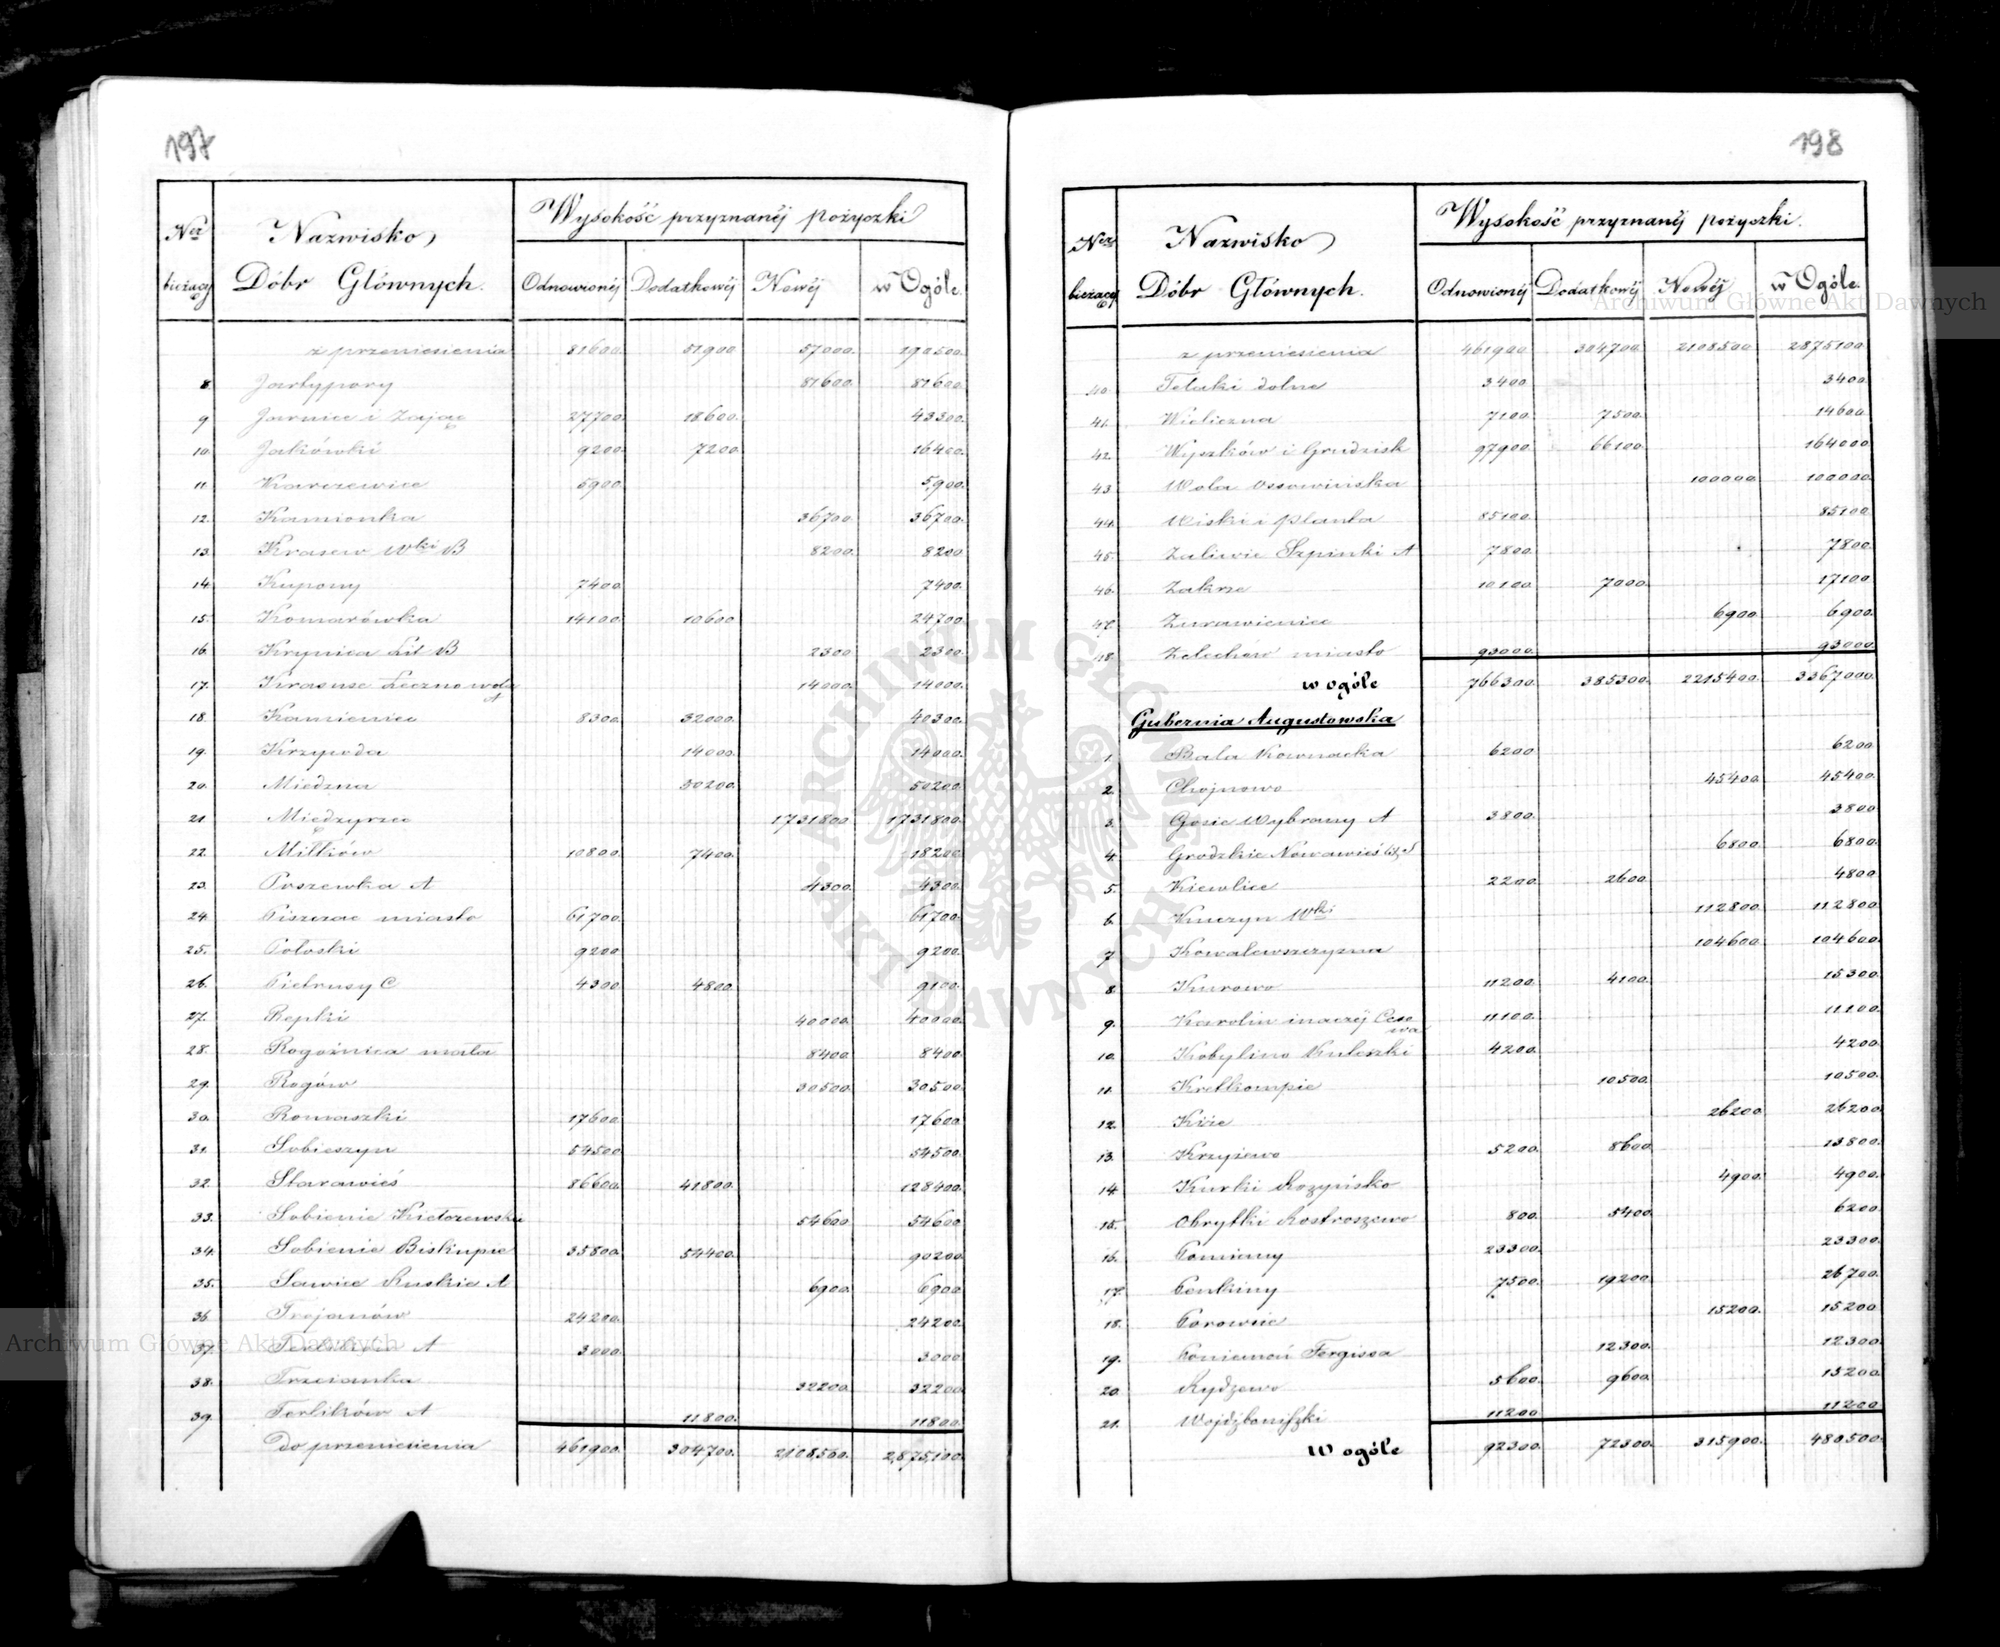 197
Nrz bieżący
Nazwisko Dóbr Głównych.
Wysokość przyznanéj pożyczki
Odnowionéj Dodatkowéj Nowéj w Ogóle.
z przeniesienia 81600. 51900 57000. 190500.
8. Jartypory 81600. 81600.
9. Jarnice i Zając 27700. 18600. 43300.
10. Jakówki 9200. 7200. 16400.
11. Karczewice 5900. 5,900.
12. Kamionka 36700. 36700.
13. Krasew Wki B 8200. 8200
14. Kupony 7400. 7400.
15. Komarówka 14100. 10600 24700.
16. Krynica Lit B 2300 2300.
17. Krasuse A 14000. 14000.
18. Kamieniec 8300. 32000. 40300.
19. Krzywda 14000. 14000.
20. Miedzna 50200. 50200.
21. Międzyrzec 1731800 1731800.
22. Miłków 10800. 7400. 18200.
23. A 4300. 4300.
24. Piszczac miasto 61700. 61700.
25. Połoski 9200 9200.
26. Pietrusy C 4300 4800. 9100.
27. Repki 40000. 40000.
28. Rogoźnica mała 8400. 8400.
29. Rogów 30500. 30500.
30. Romaszki 17600. 17600.
31. Sobieszyn 54500. 54500.
32. Starawieś 86600. 41800. 128400.
33. Sobienie Kiełczewskie 54600 54600
34. Sobienie Biskupie 35800. 54400. 90200.
35. Sawice Ruskie A 6900. 6900
36. Trojanów 24200. 24200.
37. A 3000. 3000
38. Trzcianka 32200. 32200
39. Terlików A 11800. 11800.
Do przeniesienia 461900. 304700. 2,108,500. 2,875,100.
198
Nrz bieżący
Nazwisko Dóbr Głównych.
Wysokość przyznanéj pożyczki.
Odnowionéj Dodatkowéj Nowéj w Ogóle.
z przeniesienia 461900 304700. 2108500 2875100.
40. Telaki dolne 3400. 3400.
41. Wieliczna 7100. 7500. 14600.
42. Wyszków i Grudzisk 97900. 66100. 164000
43. Wola Ossowińska 100000. 100000.
44. Wiski i Planta 85100. 85100.
45. Zaliwie Szpinki A 7800. 7800.
46. Zakrze 10100. 7000. 17100
47. Żurawieniec 6900. 6900.
48. Żelechów miasto 93000. 93000.
w ogóle 766300. 385300. 2215400. 3367000.
Gubernia Augustowska
1. Bala Kownacka 6200 6200.
2. Chojnowo 45400. 45400.
3. Gosie Wybrany A 3800. 3800
4. Grodzkie Nowawieś 6800. 6800.
5. Kiewlice 2200. 2600. 4800.
6. Kuczyn Wki 112800. 112800.
7. Kowalewszczyzna 104600. 104600.
8. Kurowo 11200. 4100. 15300.
9. Karolin inaczéj 11100. 11100.
10. Kobylino Kuleszki 4200. 4200.
11. Kretkompie 10500. 10500.
12. Kiże 26200. 26200.
13. Krzyżewo 5200. 8600. 13800.
14. Kurki 4900. 4900.
15. Obrytki Kostroszewo 800. 5400. 6200.
16. Pomiany 23300. 23300.
17. Penkiny 7500. 19200. 26700.
18. 15200. 15200
19. Poniemoń Fergissa 12300. 12300.
20. Rydzewo 5600. 9600. 15200.
21. 11200 11200
W ogóle 92300. 72300. 315900. 480500.
Archiwum Główne Akt Dawnych
ARCHIWUM GŁÓWNE AKT DAWNYCH
Archiwum Główne Akt Dawnych